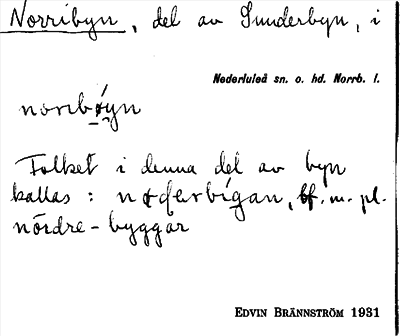 Norribyn, del av Sunderbyn, i
Nederluleå sn. o. hd. Norrb. l.
norıbǿyn
Folket i denna del av byn
kallas: nɷḍɐrbígan, bf. m. pl.
nördre-byggar
EDVIN BRÄNNSTRÖM 1931